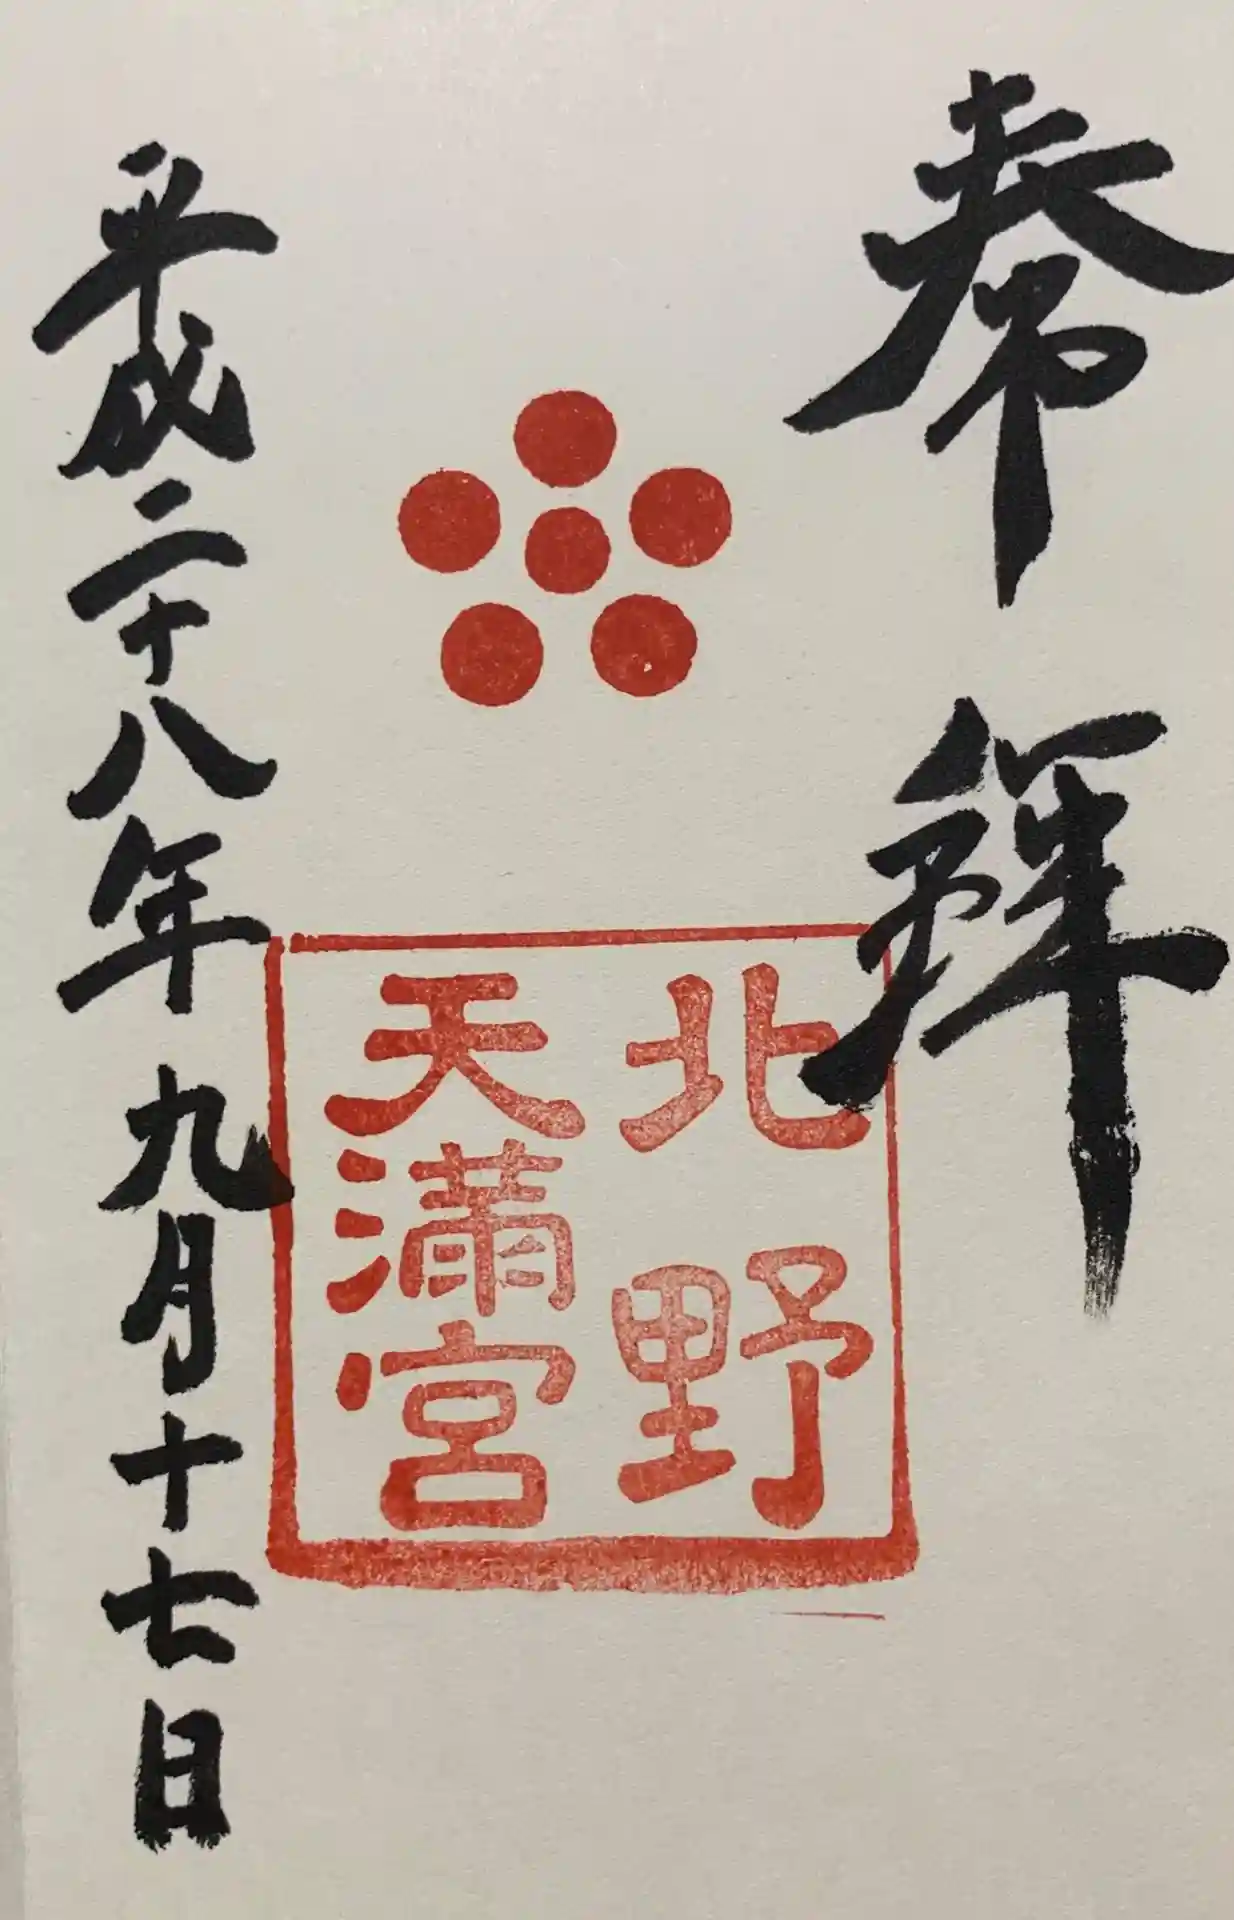 奉拝
北野
天満宮
平成二十八年九月十七日